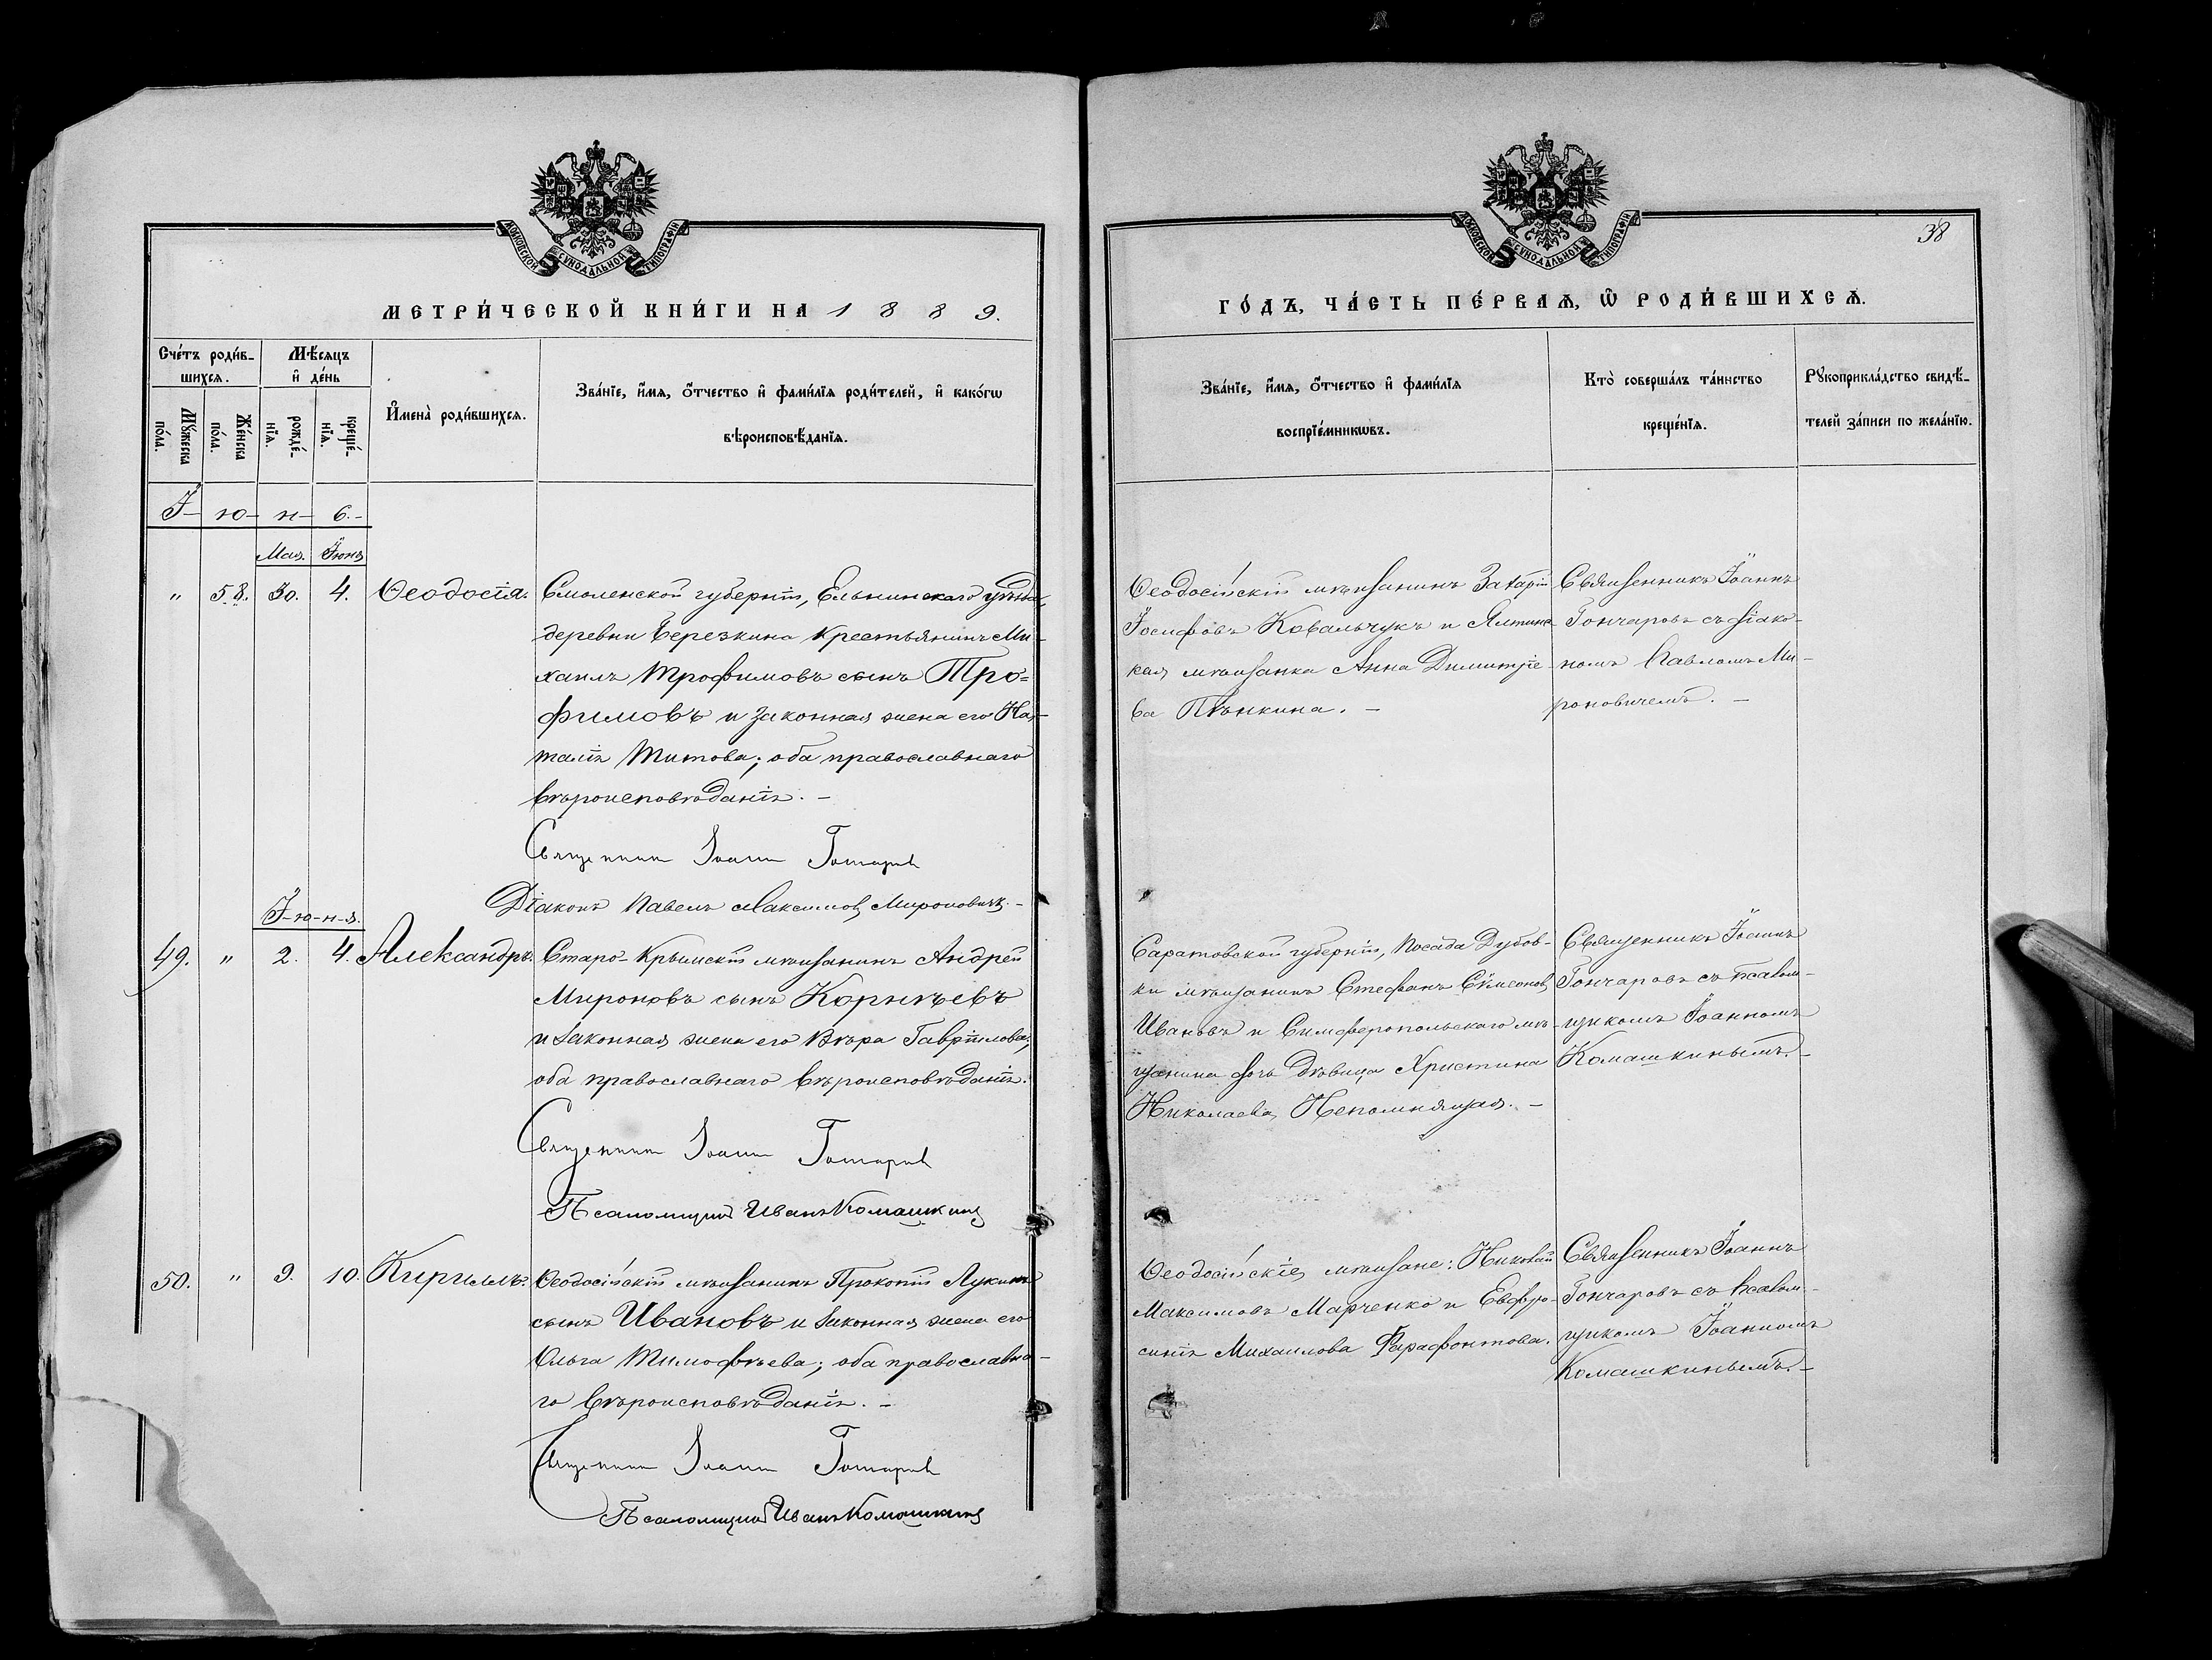 МОСКОВСКОЙ СѴНОДАЛЬНОЙ ТИПОГРАФІИ
МЕТРИ́ЧЕСКОЙ КНИ́ГИ НА 1889.
Сче́тъ роди́в-
шихсѧ.
Мѣ́сѧцъ
и҆ де́нь
Мꙋ́жеска
по́ла.
Же́нска
по́ла.
рожде́-
нїѧ.
креще́-
нїѧ.
И҆мена̀ роди́вшихсѧ.
Зва́нїе, и҆́мѧ, ѻ҆́тчество и҆ фами́лїѧ роди́телей, и҆ како́гѡ
вѣроисповѣ́данїѧ.
І- ю- н- ь.-
Мая. Іюня
" 58. 30. 4. Ѳеодосія. Смоленской губерніи, Ельнинскаго уѣзда,
деревни Березкина крестьянинъ Ми-
хаилъ Трофимовъ сынъ Тро=
фимовъ и законная жена его На-
талія Титова; оба православнаго
вѣроисповѣданія. -
Священникъ Іоаннъ Гончаровъ
Діаконъ Павелъ Максимовъ Мироновичъ. -
І-ю-н-я.
49. " 2. 4. Александръ. Старо-Крымскій мѣщанинъ Андрей
Мироновъ сынъ Корнѣевъ
и законная жена его Вѣра Гавріилова;
оба православнаго вѣроисповѣданія.
Священникъ Іоаннъ Гончаровъ
Псаломщикъ Иванъ Комашкинъ
50. " 9. 10. Кириллъ. Ѳеодосійскій мѣщанинъ Прокопій Лукинъ
сынъ Ивановъ и законная жена его
Ольга Тимофѣева; оба православна-
го вѣроисповѣданія. -
Священникъ Іоаннъ Гончаровъ
Псаломщикъ Иванъ Комашкинъ
38
МОСКОВСКОЙ СѴНОДАЛЬНОЙ ТИПОГРАФІИ
ГО́ДЪ, ЧА́СТЬ ПЕ́РВАѦ, Ѽ РОДИ́ВШИХСѦ.
Зва́нїе, и҆́мѧ, ѻ҆́тчество и҆ фами́лїѧ
воспрїе́мникѡвъ.
Кто̀ соверша́лъ та́инство
креще́нїѧ.
Рꙋкоприкла́дство свидѣ́-
телей за́писи по жела́нїю.
Ѳеодосійскій мѣщанинъ Захарій
Іосифовъ Ковальчукъ и Ялтинс-
кая мѣщанка Анна Димитріе-
ва Пѣнкина. -
Священникъ Іоаннъ
Гончаровъ съ діако-
номъ Павломъ Ми-
роновичемъ. -
Саратовской губерніи, посада Дубов-
ки мѣщанинъ Стефанъ Сѵмеоновъ
Ивановъ и Симферопольскаго мѣ-
щанина дочь дѣвица Христина
Николаева Непомнящая. -
Священникъ Іоаннъ
Гончаровъ съ псалом-
щикомъ Іоанномъ
Комашкинымъ. -
Ѳеодосійскіе мѣщане: Николай
Максимовъ Марченко и Евфро-
синія Михаилова Фарафонтова.
Священникъ Іоаннъ
Гончаровъ съ псалом-
щикомъ Іоанномъ
Комашкинымъ. -